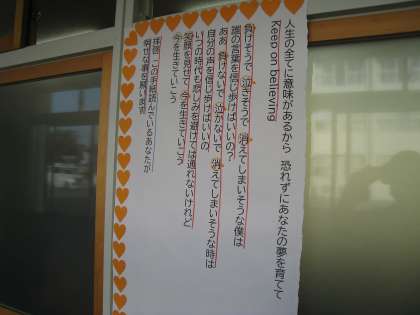 人生の全てに意味があるから 恐れずにあなたの夢を育てて
Keep on believing
負けそうで 泣きそうで 消えてしまいそうな僕は
誰の言葉を信じ歩けばいいの?
ああ 負けないで 泣かないで 消えてしまいそうな時は
自分の声を信じ歩けばいいの
いつの時代も悲しみを避けては通れないけれど
笑顔を見せて 今を生きていこう
今を生きていこう
拝啓 この手紙読んでいるあなたが
幸せな事を願います